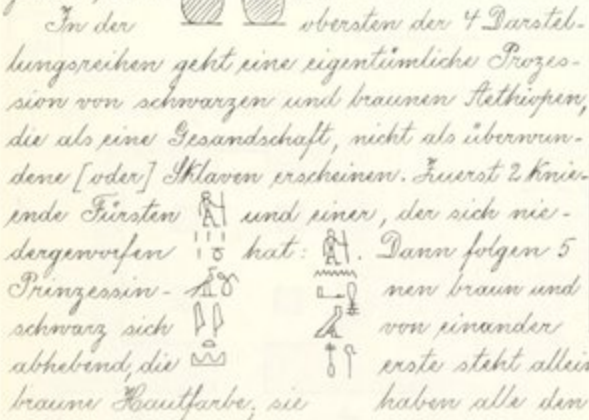 In der obersten der 4 Darstel-
lungsreihen geht eine eigentümliche Prozes-
sion von schwarzen und braunen Aethiopen,
die als eine Gesandschaft, nicht als überwun-
dene [oder] Sklaven erscheinen. Zuerst 2 knie-
ende Fürsten und einer, der sich nie-
dergeworfen hat: . Dann folgen 5
Prinzessin- nen braun und
schwarz sich von einander
abhebend, die erste steht allein
braune Hautfarbe, sie haben alle den